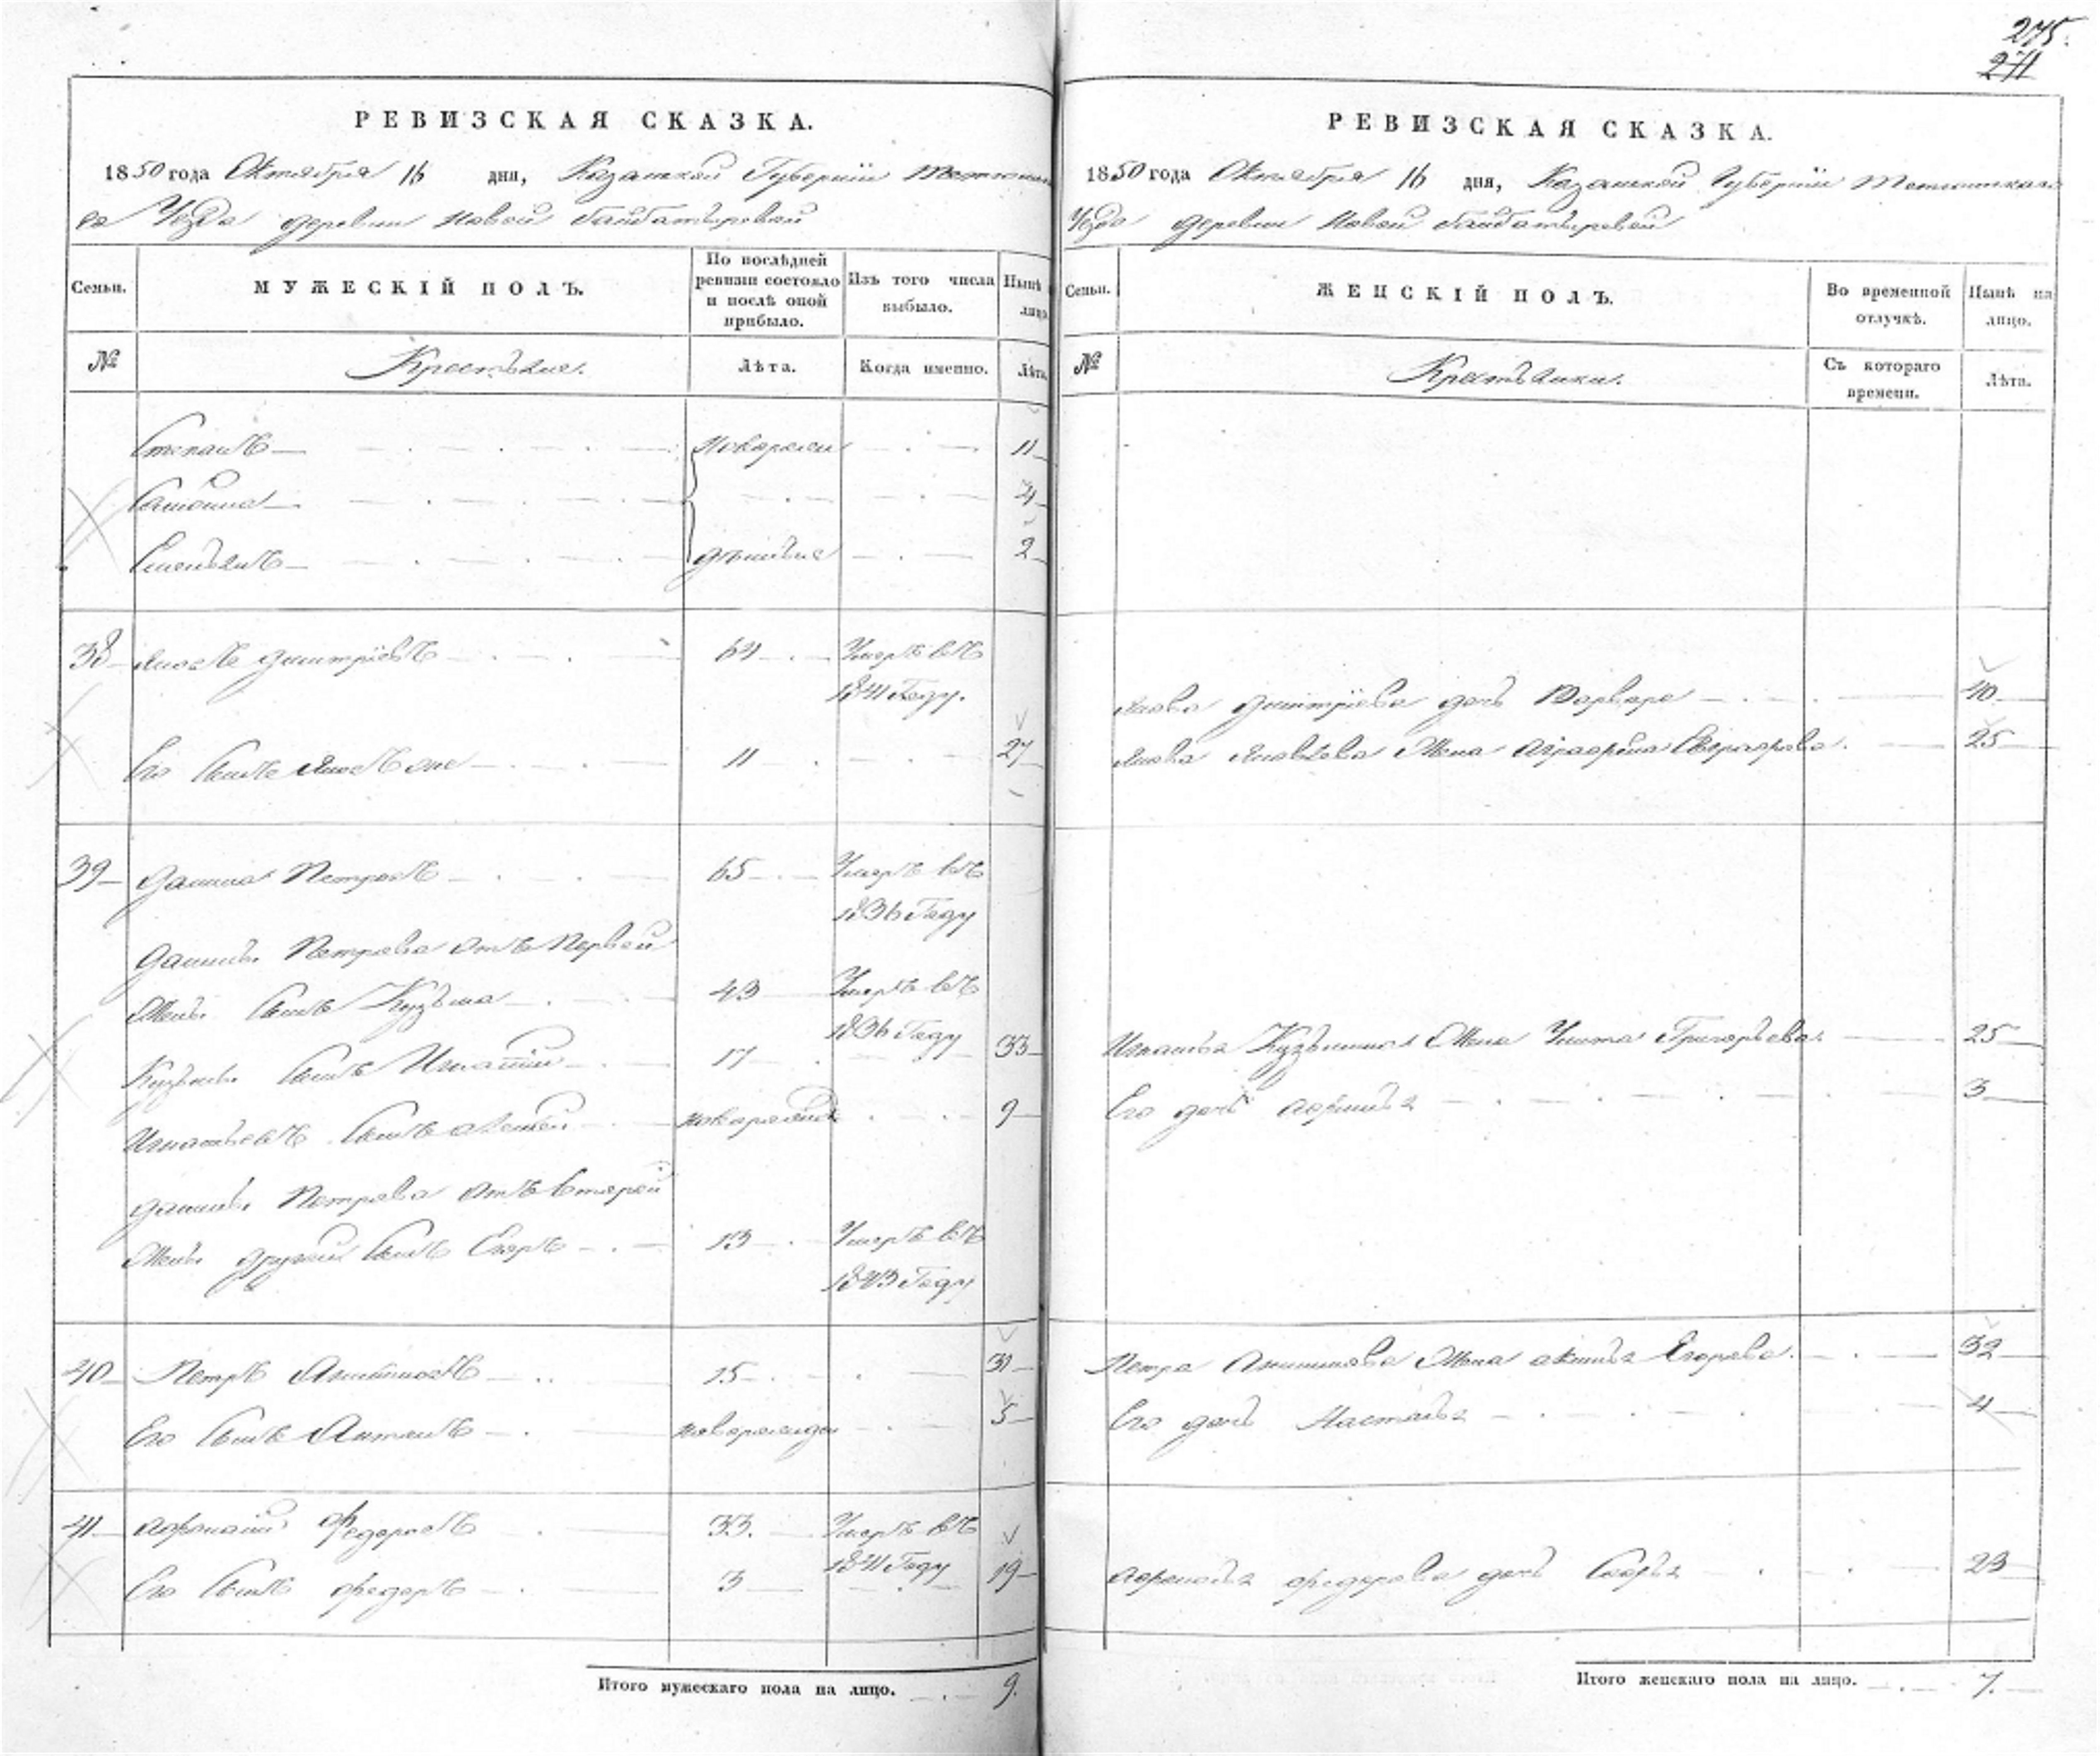 275.
271
РЕВИЗСКАЯ СКАЗКА.
1850 года Октября 16 дня, Казанской Губернии Тетюшска
го Уезда деревни Новой Байбатыревой
Семьи.
МУЖЕСКІЙ ПОЛЪ.
По послѣдней
ревизіи состояло
и послѣ оной
прибыло.
Изъ того числа
выбыло.
Нынѣ
лицо
№
Крестьяне.
Лѣта.
Когда именно.
Лѣта.
Степанъ новорожен 11
4
Емельянъ дѣтные 2
38 Яковъ Дмитріевъ 64 Умеръ въ
1841 Году.
Его сынъ Яковъ же 11 27
39 Данила Петровъ 65 Умеръ въ
1836 Году
Данилы Петрова отъ первой
жены сынъ Кузьма 43 Умеръ въ
1836 Году
Кузьмы сынъ Игнатій 17 33
Игнатьевъ сынъ Алексей новорожен 9
Данилы Петрова отъ второй
жены другой сынъ Егоръ 13 Умеръ въ
1843 Году
40 Петръ 15 31
Его сынъ Антонъ новорожден 5
41 Афонасій Федоровъ 33. Умеръ въ
1841 Году
Его сынъ Федоръ 3 19
Итого мужескаго пола на лицо. 9.
РЕВИЗСКАЯ СКАЗКА.
1850 года Октября 16 дня, Казанской Губернии Тетюшскаго
Уезда деревни Новой Байбатыревой
Семьи.
ЖЕНСКІЙ ПОЛЪ.
Во временной
отлучкѣ.
Нынѣ на
лицо.
№
Крестьянки.
Съ котораго
времени.
Лѣта.
Якова Дмитріева дочь Варвара 40
Якова Яковлева жена Аграфена 25
Игнатья Кузьмина жена Улита Григорьева 25
Его дочь Афимья 3
Петра жена Егорова. 32
Его дочь Настасья 4
Афонасья Федорова дочь 23
Итого женскаго пола на лицо. 7.